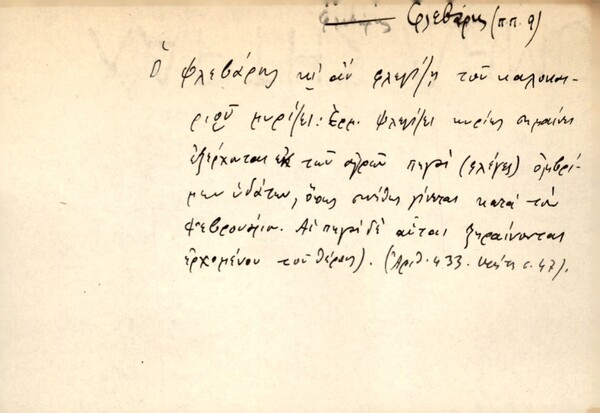 Φλεβάρης (π.π. 9)
Ὁ Φλεβάρης κι' ἂν φλεβίζῃ τοῦ καλοκαι-
ριοῦ μυρίζει: Ἑρμ. Φλεβίζει κυρίως σημαίνει
ἐξέρχονται ἐκ τῶν ἀγρῶν πηγαὶ (φλέβες) ὀμβρί-
μων ὑδάτων, ὅπως συνήθως γίνεται κατὰ τὸν
Φεβρουάριον. Αἱ πηγαὶ δὲ αὗται ξηραίνονται
ἐρχομένου τοῦ θέρους). (Ἀριθ. 433. σ. 47).